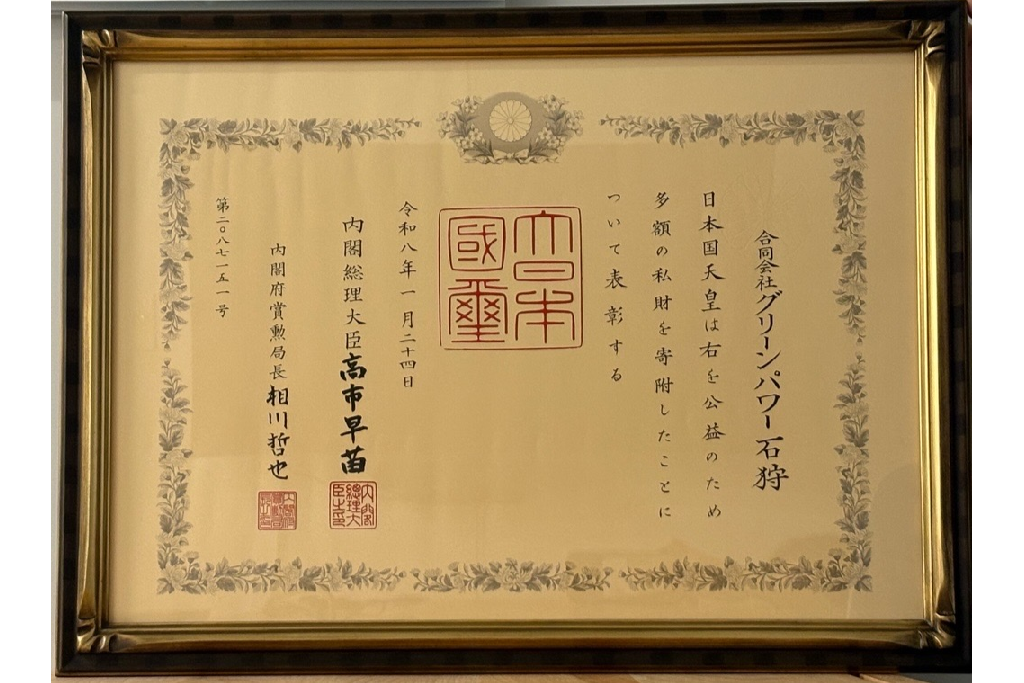 合同会社グリーンパワー石狩
日本国天皇は右を公益のため
多額の私財を寄附したことに
ついて表彰する
大日本國璽
令和八年一月二十四日
内閣総理大臣高市早苗
内閣總理大臣之印
内閣府賞勲局長相川哲也
第二〇八七一五一号